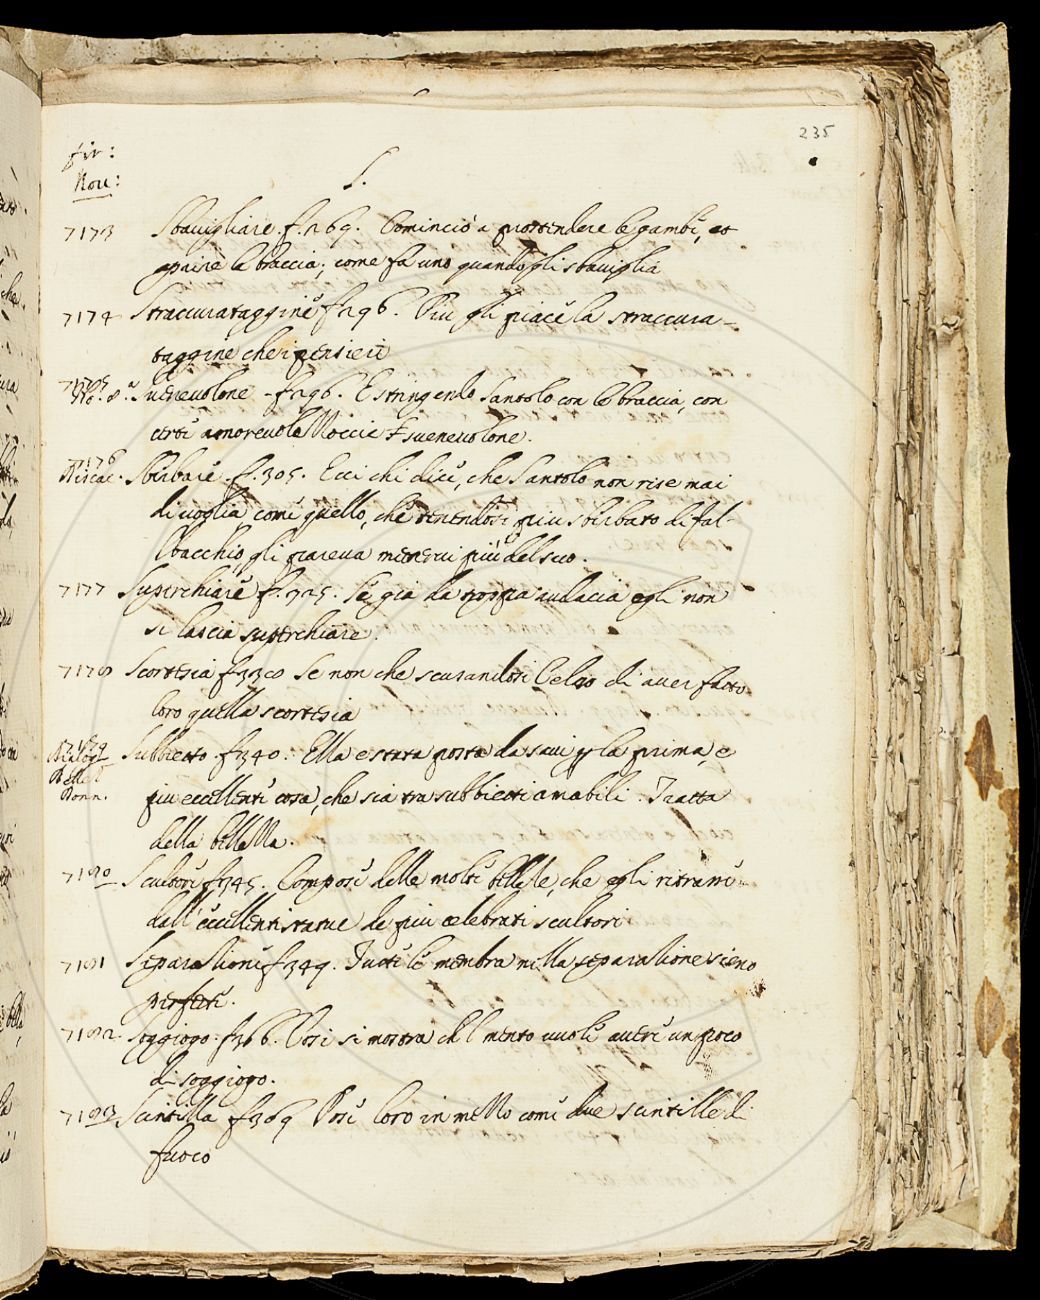 235
fir:
Nou:
S.
7173 Sbavigliare. f. 269. Cominciò a prostendere le gambe, et
aprire le braccia; come fa uno quando gli sbaviglia
7174 Straccurataggine f. 296. Piu gli piace la straccura-
taggine che i pensieri
7175 Suenevolone - f. 296. E stringendo Santolo con le braccia, con
certe amorevolezzoccie suenevolone.
7176 Sbirbare. f. 305. Ecci chi dice, che Santolo non rise mai
di voglia come quello, che tenendosi piu sbirbato di fal-
lbacchio, gli pareva
7177 Superchiare f. 325. Se gia da troppa audacia egli non
si lascia superchiare.
7178 Scortesia f. 330 Se non che scusandosi Celso di aver fatto
loro quella scortesia
7179 Subbietto f. 340. Ella e stata posta da savi p la prima, e
Dialog
Belle
Donn.
piu eccellente cosa, che sia tra subbietti amabili. Tratta
della bellezza.
7180 Scultori f. 345. Compose delle molte bellezze, che egli ritrasse
dall'eccellenti statue de piu celebrati scultori
7181 Separazione f. 349. Tutte le membra nella separazione sieno
perfette.
7182 Soggiogo. f. 366. Cosi si mostra ch'l mento vuole avere un poco
di soggiogo.
7183 Scintilla f. 369 Pose loro in mezzo come due scintille di
fuoco